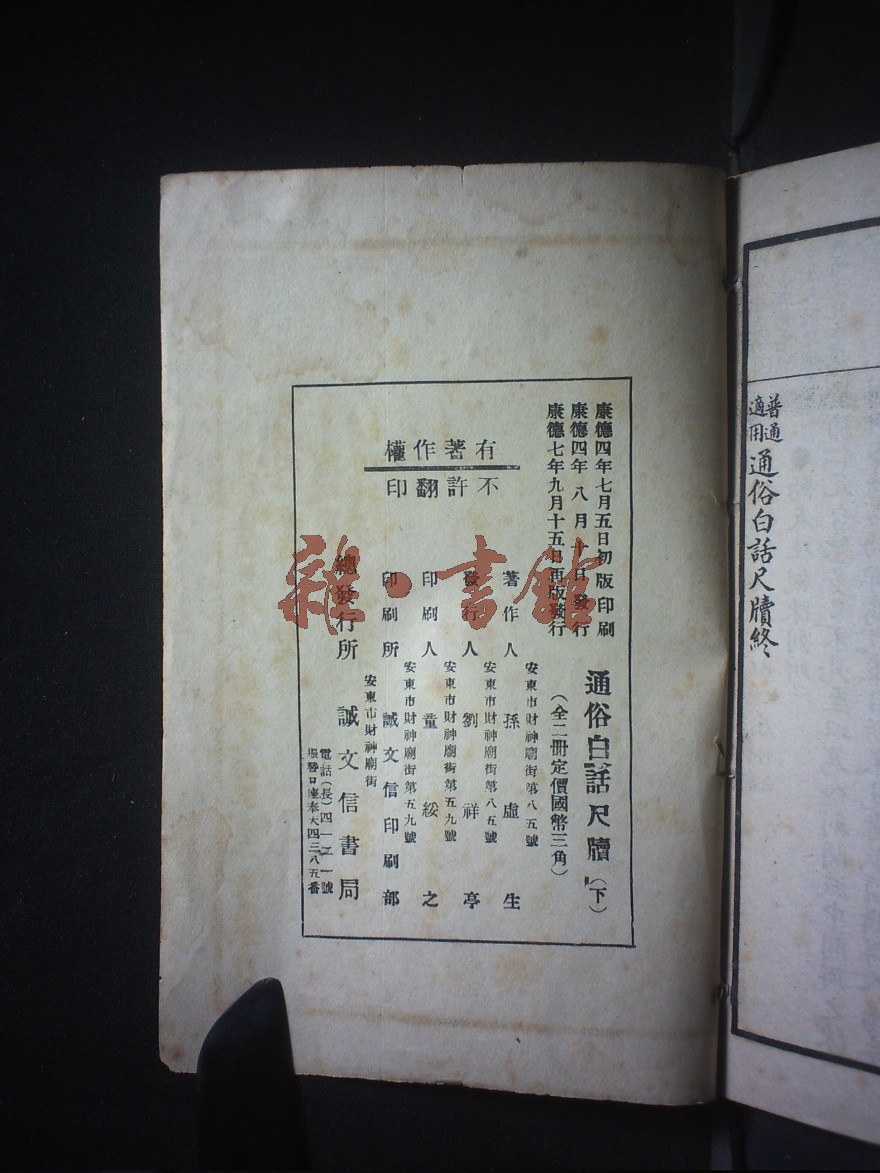 普通
適用
通俗白話尺牘終
康德四年七月五日初版印刷
康德四年八月十日發行
康德七年九月十五日再版發行
通俗白話尺牘(下)
(全二冊定價國幣三角)
有著作權
不許翻印
安東市財神廟街第八五號
著作人 孫虛生
安東市財神廟街第八五號
發行人 劉祥亭
安東市財神廟街第五九號
印刷人 童綏之
安東市財神廟街第五九號
印刷所 誠文信印刷部
安東市財神廟街
總發行所 誠文信書局
電話(長)四一二一號
振替口座奉天四三八五番
雜·書館